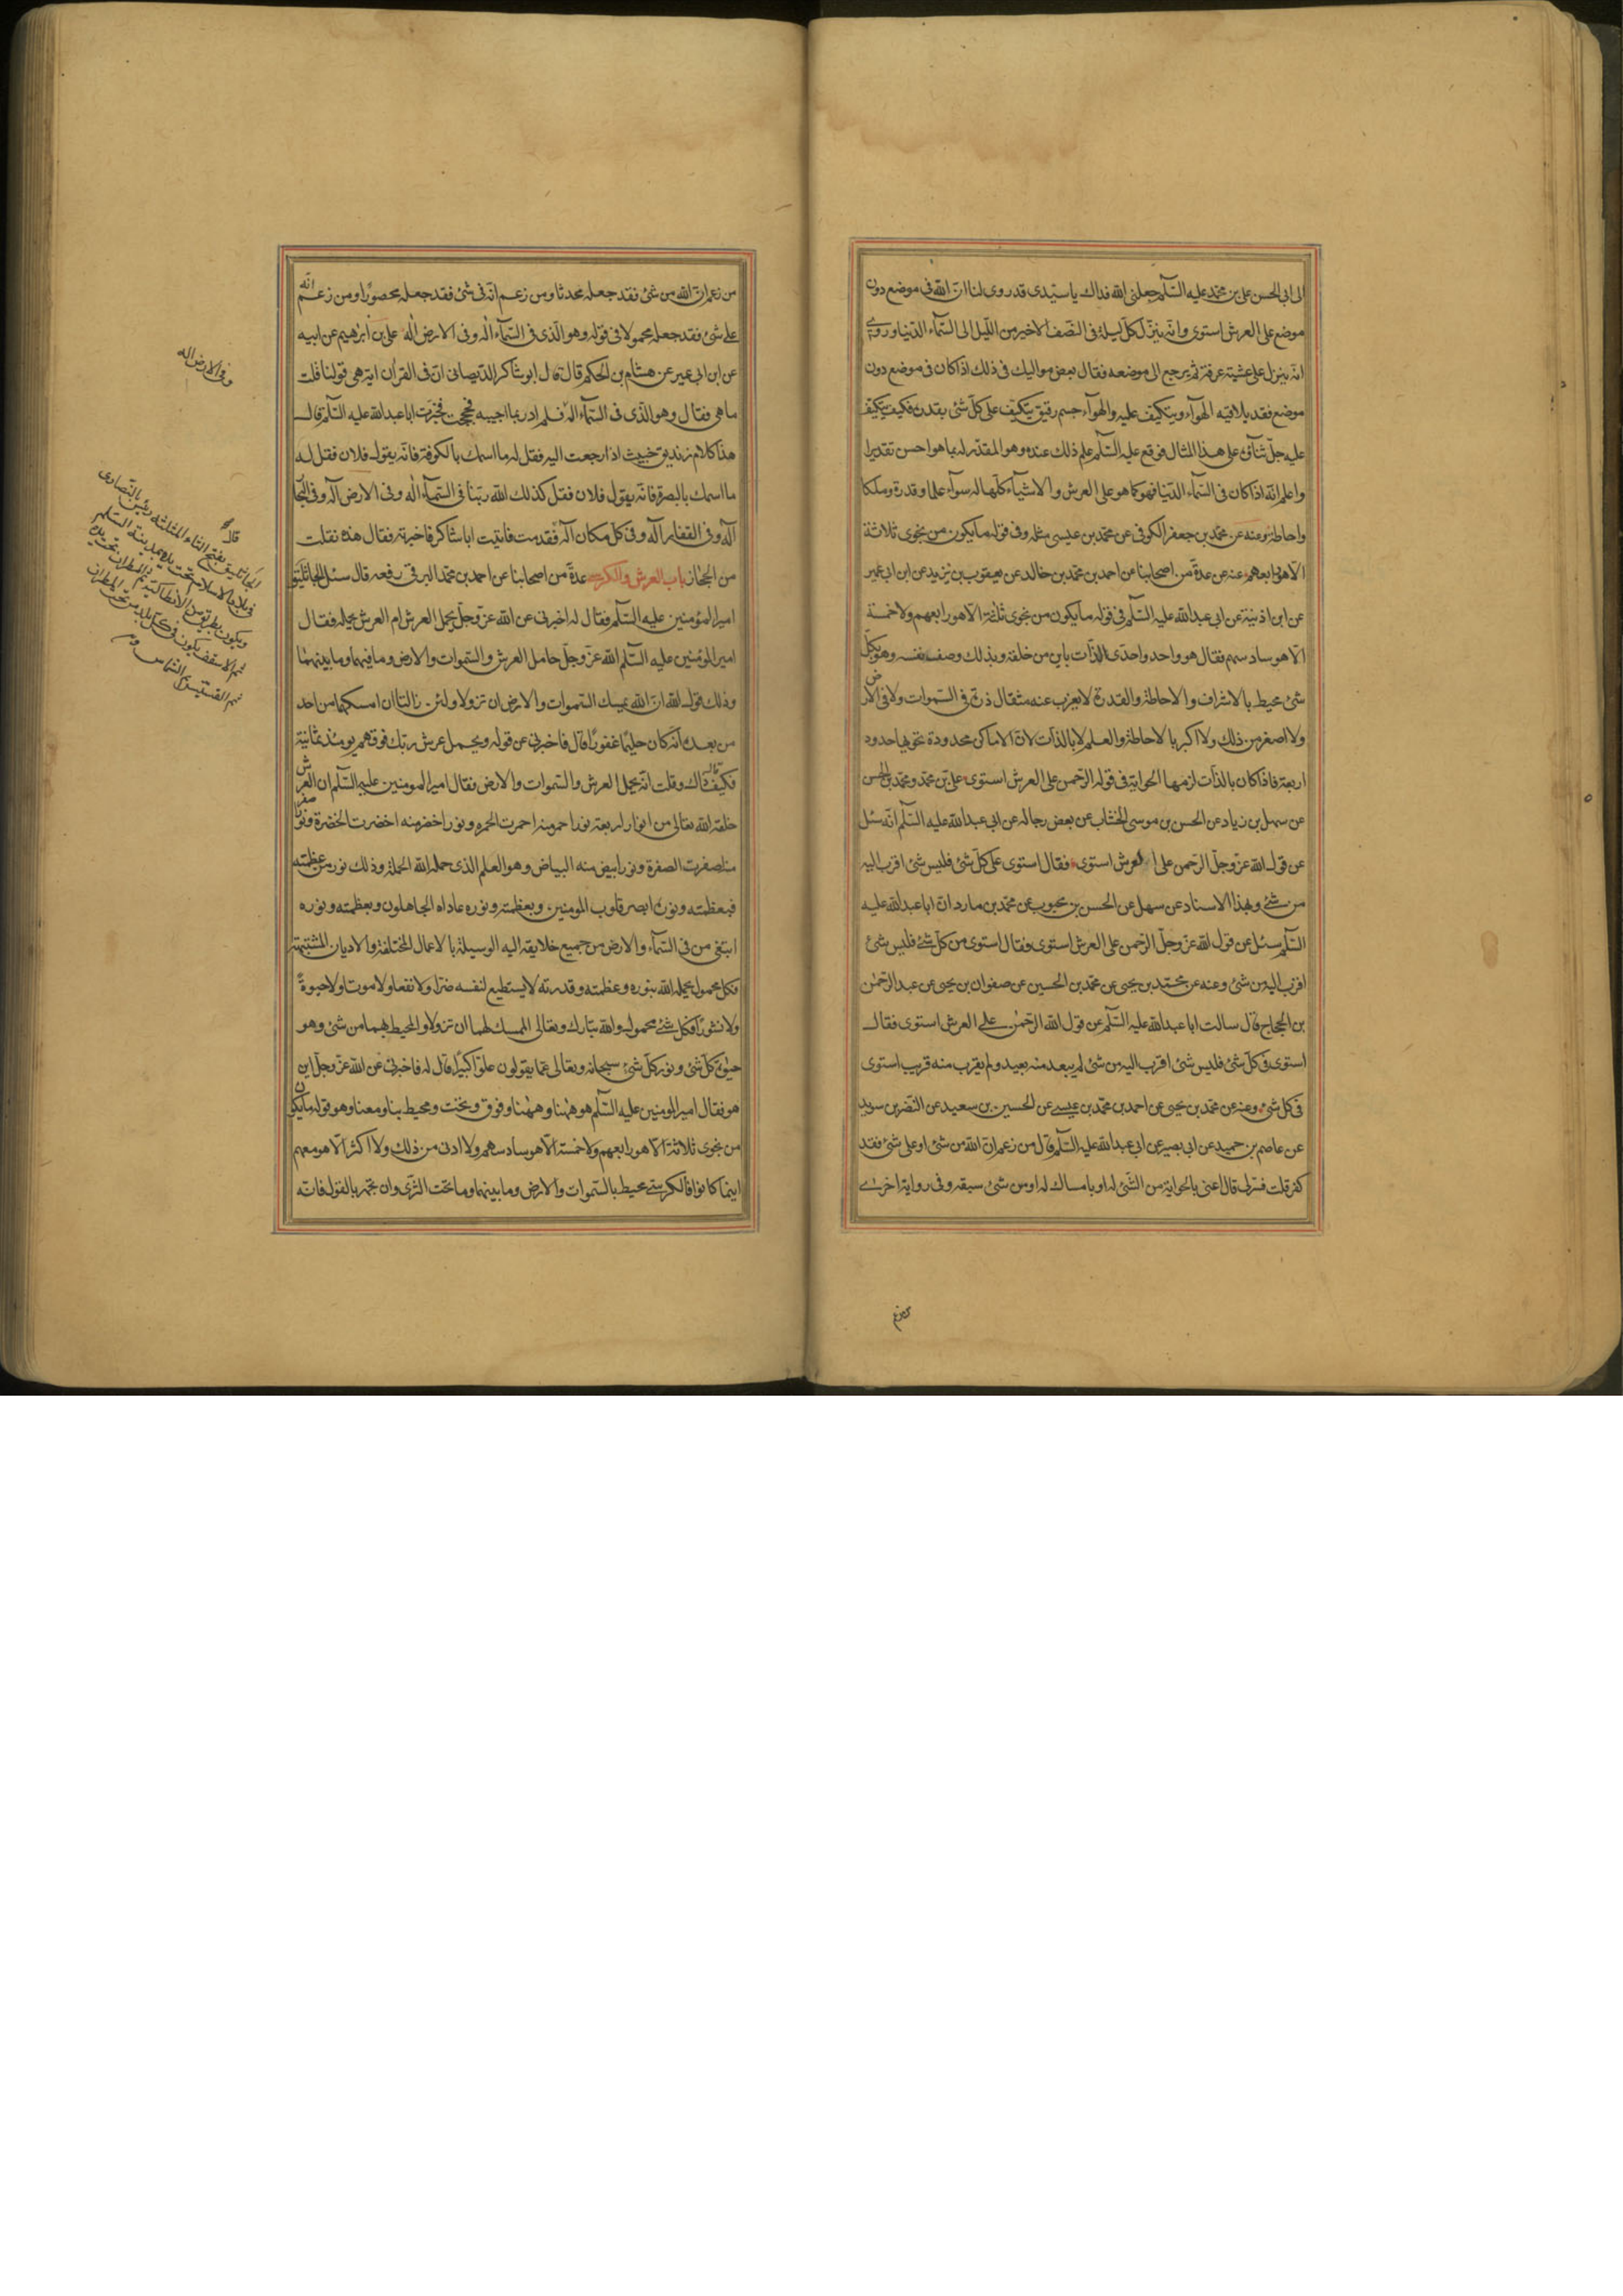 الی ابی الحسن علی بن محمد علیه السلم جعلنی الله فداك یا سیدی قد روی لنا ان الله فی موضع دون
موضع علی العرش استوی و انه ینزل کل لیلة فی النصف الاخیر من اللیل الی السماء الدنیا و روی
انه ینزل علی عشیة عرفة ثم یرجع الی موضعه فقال بعض موالیك فی ذلك اذا کان فی موضع دون
موضع فقد یلاقیه الهوآء و یتکیف علیه و الهوآء جسم رقیق یتکیف علی کل شئ بقدره فکیف یتکیف
علیه جل ثناؤه علی هذا المثال فوقع علیه السلم علم ذلك عنده و هو المقدر له بما هو احسن تقدیرا
و اعلم انه اذا کان فی السمآء الدنیا فهو کما هو علی العرش و الاشیآء کلها له سوآء علما و قدرة و ملکا
و احاطة و عنه عن محمد بن جعفر الکوفی عن محمد بن عیسی مثله و فی قوله ما یکون من نجوی ثلاثة
الا هو رابعهم عنه عن عدة من اصحابنا عن احمد بن محمد بن خالد عن یعقوب بن یزید عن ابن ابی عمیر
عن ابن اذینة عن ابی عبد الله علیه السلم فی قوله ما یکون من نجوی ثلثة الا هو رابعهم ولا خمسة
الا هو سادسهم فقال هو واحد واحدی الذات باین من خلقه و بذلك وصف نفسه و هو بکل
شئ محیط بالاشراف و الاحاطة و القدرة لا یعزب عنه مثقال ذرة فی السموات ولا فی الارض
ولا اصغر من ذلك ولا اکبر بالاحاطة و العلم لا بالذات لان الاماکن محدودة تحویها حدود
اربعة فاذا کان بالذات لزمها الحوایة فی قوله الرحمن علی العرش استوی علی بن محمد و محمد بن الحسن
عن سهل بن زیاد عن الحسن بن موسی الخشاب عن بعض رجاله عن ابی عبد الله علیه السلم انه سئل
عن قول الله عز و جل الرحمن علی العرش استوی فقال استوی علی کل شئ فلیس شئ اقرب الیه
من شئ و بهذا الاسناد عن سهل عن الحسن بن محبوب عن محمد بن مارد ان ابا عبد الله علیه
السلم سئل عن قول الله عز و جل الرحمن علی العرش استوی فقال استوی من کل شئ فلیس شئ
اقرب الیه من شئ و عنه عن محمد بن یحیی عن محمد بن الحسین عن صفوان بن یحیی عن عبد الرحمن
بن الحجاج قال سالت ابا عبد الله علیه السلم عن قول الله الرحمن علی العرش استوی فقال
استوی فی کل شئ فلیس شئ اقرب الیه من شئ لم یبعد منه بعید و لم یقرب منه قریب استوی
فی کل شئ و عنه عن محمد بن یحیی عن احمد بن محمد بن عیسی عن الحسین بن سعید عن النضر بن سوید
عن عاصم بن حمید عن ابی بصیر عن ابی عبد الله علیه السلم قال من زعم ان الله من شئ او علی شئ فقد
کفر قلت فسر لی قال اعنی بالحوایة من الشئ له او بامساك له او من شئ سبقه و فی روایة اخری
من زعم ان الله من شئ فقد جعله محدثا و من زعم انه فی شئ فقد جعله محصورا و من زعم انه
علی شئ فقد جعله محمولا فی قوله و هو الذی فی السمآء اله و فی الارض اله علی بن ابرهیم عن ابیه
عن ابن ابی عمیر عن هشام بن الحکم قال قال ابو شاکر الدیصانی ان فی القرآن ایة هی قولنا قلت
ما هی فقال و هو الذی فی السمآء اله فلم ادر بما اجیبه فحججت فخبرت ابا عبد الله علیه السلم قال
هذا کلام زندیق خبیث اذا رجعت الیه فقل له ما اسمك بالکوفة فانه یقول فلان فقل له
ما اسمك بالبصرة فانه یقول فلان فقل کذلك الله ربنا فی السمآء اله و فی الارض اله و فی البحار
اله و فی القفار اله و فی کل مکان اله فقدمت فاتیت ابا شاکر فاخبرته فقال هذه نقلت
من الحجاز باب العرش و الکرسی عدة من اصحابنا عن احمد بن محمد البرقی رفعه قال سئل الجاثلیق
امیر المؤمنین علیه السلم فقال له اخبرنی عن الله عز و جل یحمل العرش ام العرش یحمله فقال
امیر المؤمنین علیه السلم الله عز و جل حامل العرش و السموات و الارض و ما فیهما و ما بینهما
و ذلك قول الله ان الله یمسك السموات و الارض ان تزولا و لئن زالتا ان امسکهما من احد
من بعده انه کان حلیما غفورا قال فاخبرنی عن قوله و یحمل عرش ربك فوقهم یومئذ ثمانیة
فکیف قال ذاك و قلت انه یحمل العرش و السموات و الارض فقال امیر المومنین علیه السلم ان العرش
خلقه الله تعالی من انوار اربعة نور احمر منه احمرت الحمره و نور اخضر منه اخضرت الخضرة و نور اصفر
منه اصفرت الصفرة و نور ابیض منه البیاض و هو العلم الذی حمله الله الحملة و ذلك نور من عظمته
فبعظمته و نوره ابصر قلوب المومنین و بعظمته و نوره عاداه الجاهلون و بعظمته و نوره
ابتغی من فی السمآء و الارض من جمیع خلایقه الیه الوسیلة بالاعمال المختلفة و الادیان المشتبهة
فکل محمول یحمله الله بنوره و عظمته و قدرته لا یستطیع لنفسه ضرا ولا نفعا ولا موتا ولا حیوة
ولا نشورا فکل شئ محمول و الله تبارك و تعالی الممسك لهما ان تزولا و المحیط بهما من شئ و هو
حیوة کل شئ و نور کل شئ سبحانه و تعالی عما یقولون علوا کبیرا قال له فاخبرنی عن الله عز و جل این
هو فقال امیر المومنین علیه السلم هو ههنا و ههنا و فوق و تحت و محیط بنا و معنا و هو قوله ما یکون
من نجوی ثلاثة الا هو رابعهم ولا خمسة الا هو سادسهم ولا ادنی من ذلك ولا اکثر الا هو معهم
اینما کانوا فالکرسی محیط بالسموات و الارض و ما بینهما و ما تحت الثری و ان تجهر بالقول فانه
و فی الارض اله
الجاثلیق بفتح الثاء المثلثه رئیس النصاری
فی بلاد الاسلام بمدینة السلم
و یکون تحت ید بطریق انطاکیة ثم المطران تحت یده
ثم الاسقف یکون فی کل بلد من تحت المطران
ثم القسیس ثم الشماس